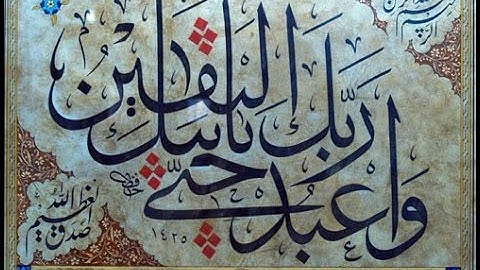 بسم الله الرحمن الرحيم
وَاعْبُدْ رَبَّكَ حَتَّىٰ يَأْتِيَكَ الْيَقِينُ
صدق الله العظيم
١٤٢٥